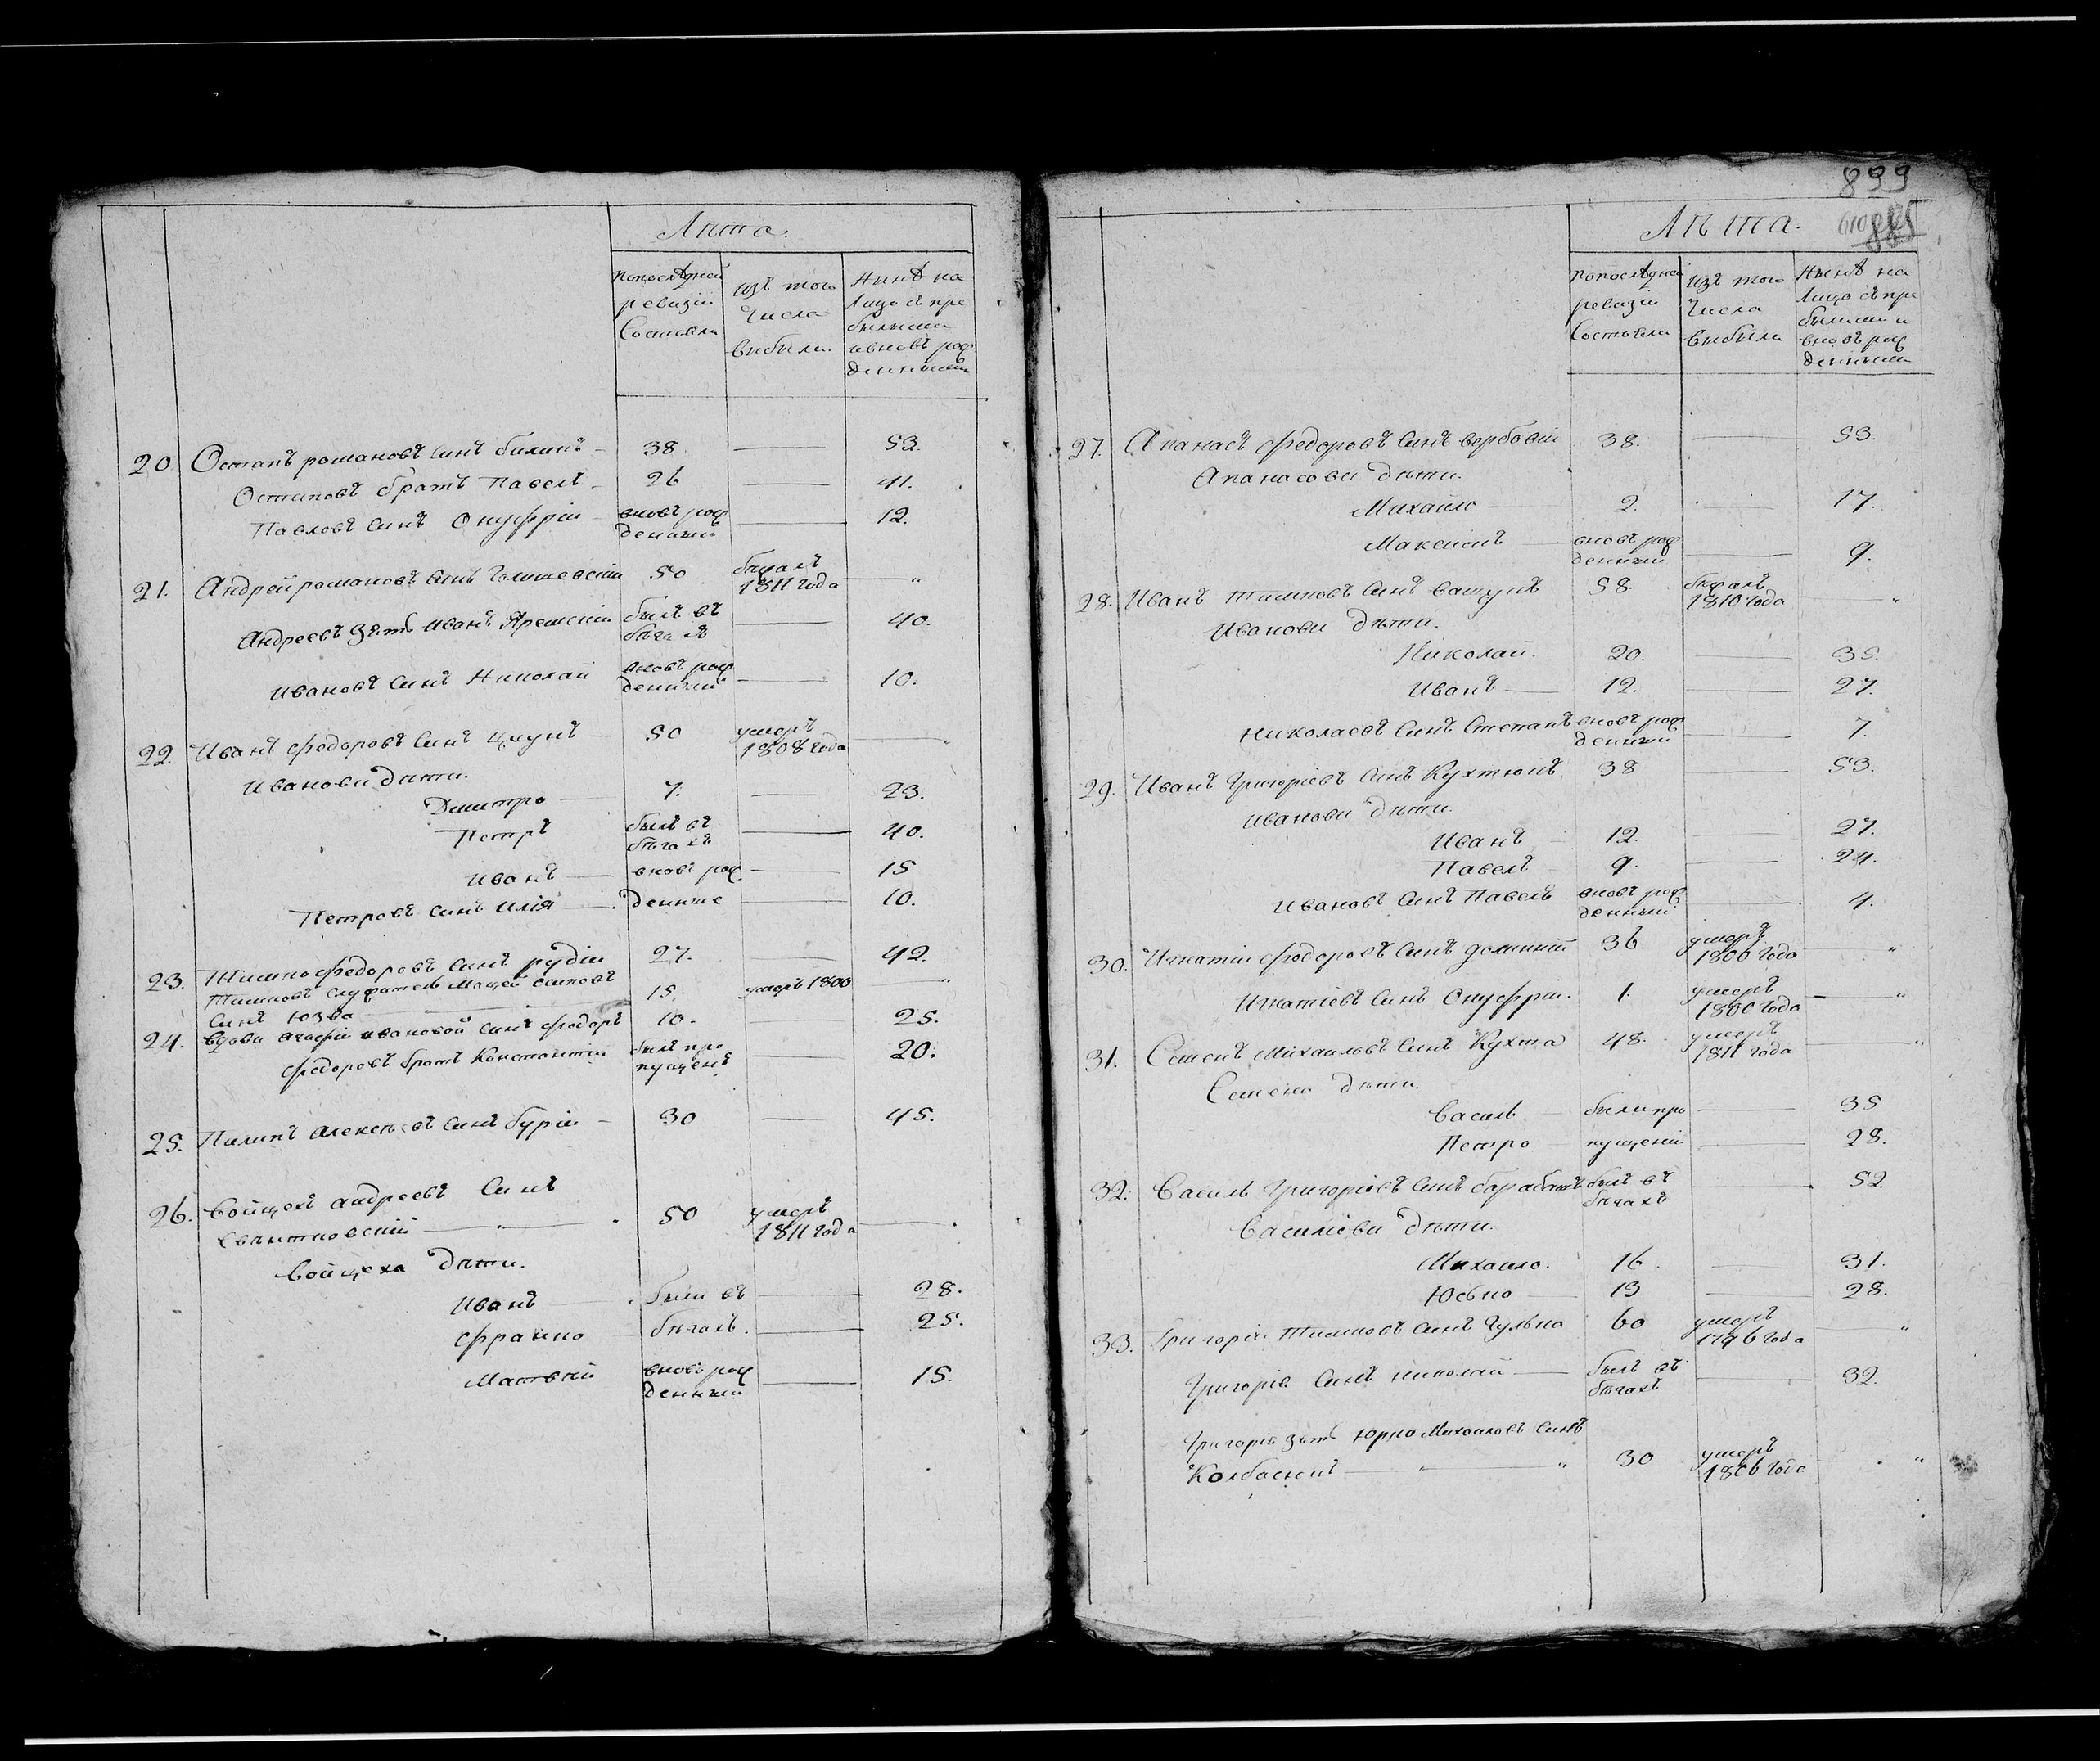 Лѣта.
попослѣдней ревизіи Состояли
изъ того Числа выбыли.
Нынѣ на Лицо съ пре былыми ивновь рож денными
20 Остапъ романовъ Синъ билыкъ 38 — 53.
Остаповъ братъ Павелъ 26 — 41.
Павловъ Синъ Онуфрій вновь рож денный — 12.
21. Андрей романовъ Синъ 50 бѣжалъ 1811 года — "
Андреевъ Зять Иванъ Яремскій былъ въ бѣгахъ — 40.
Ивановъ Синъ Николай вновь рож денный — 10.
22. Иванъ федоровъ Синъ 50 умеръ 1808 года — "
Иванови Дѣти.
Дмитро 7. — 23.
Петръ былъ въ бѣгахъ — 40.
Иванъ вновь рож — 15
Петровъ Синъ Илія денные — 10.
23. Тимко федоровъ Синъ рудій 27. — 42.
Тимковъ Служитель Мацей осиповъ 15. умеръ 1800 — "
Синъ Юзва
24. вдови агафіи ивановой Синъ федоръ 10. 25.
федоровъ братъ Константій былъ про пущенъ 20.
25. Пилипъ алексѣевъ Синъ бурій 30 — 45.
26. Войцехъ андреевъ Синъ
50 умеръ 1811 года —
Войцеха Дѣти.
Иванъ были въ — 28.
франко бѣгахъ. — 25.
Матвѣй вновь рож денный — 15.
899
885
Лѣта.
попослѣдней ревизіи Состояли
изъ того Числа выбыли
Нынѣ на Лицо съ пре былыми и вновь рож денными
27. Апанасъ федоровъ Синъ вербовій 38. — 53.
Апанасови Дѣти.
Михайло 2. — 17.
Максимъ вновь рож денный — 9.
28. Иванъ Тимковъ Синъ 58. бѣжалъ 1810 года — "
Иванови Дѣти.
Николай. 20. — 35.
Иванъ 12. — 27.
Николаевъ Синъ Степанъ вновь рож денный — 7.
29. Иванъ Григоріевъ Синъ Кухтюкъ 38 — 53.
Иванови Дѣти.
Иванъ 12. — 27.
Павелъ 9. — 24.
Ивановъ Синъ Павелъ вновь рож денный — 4.
30. Игнатій федоровъ Синъ 36 умеръ 1800 года "
Игнатіевъ Синъ Онуфрій. 1. умеръ 1800 года — "
31. Семенъ Михайловъ Синъ Кухта 48. умеръ 1811 года — "
Семена Дѣти.
Василь были про — 35
Петро пущеніи — 28.
32. Василь Григоріевъ Синъ барабашъ былъ въ бѣгахъ — 52
Василіеви Дѣти.
Михайло. 16. — 31.
Юсько 13 — 28.
33. Григорій Тимковъ Синъ Гулька 60 умеръ 1796 года — "
Григорія Синъ николай былъ въ бѣгахъ — 32.
Григорія Зять Юрко Михайловъ Синъ
Колбасюкъ — " — " 30 умеръ 1806 года — "